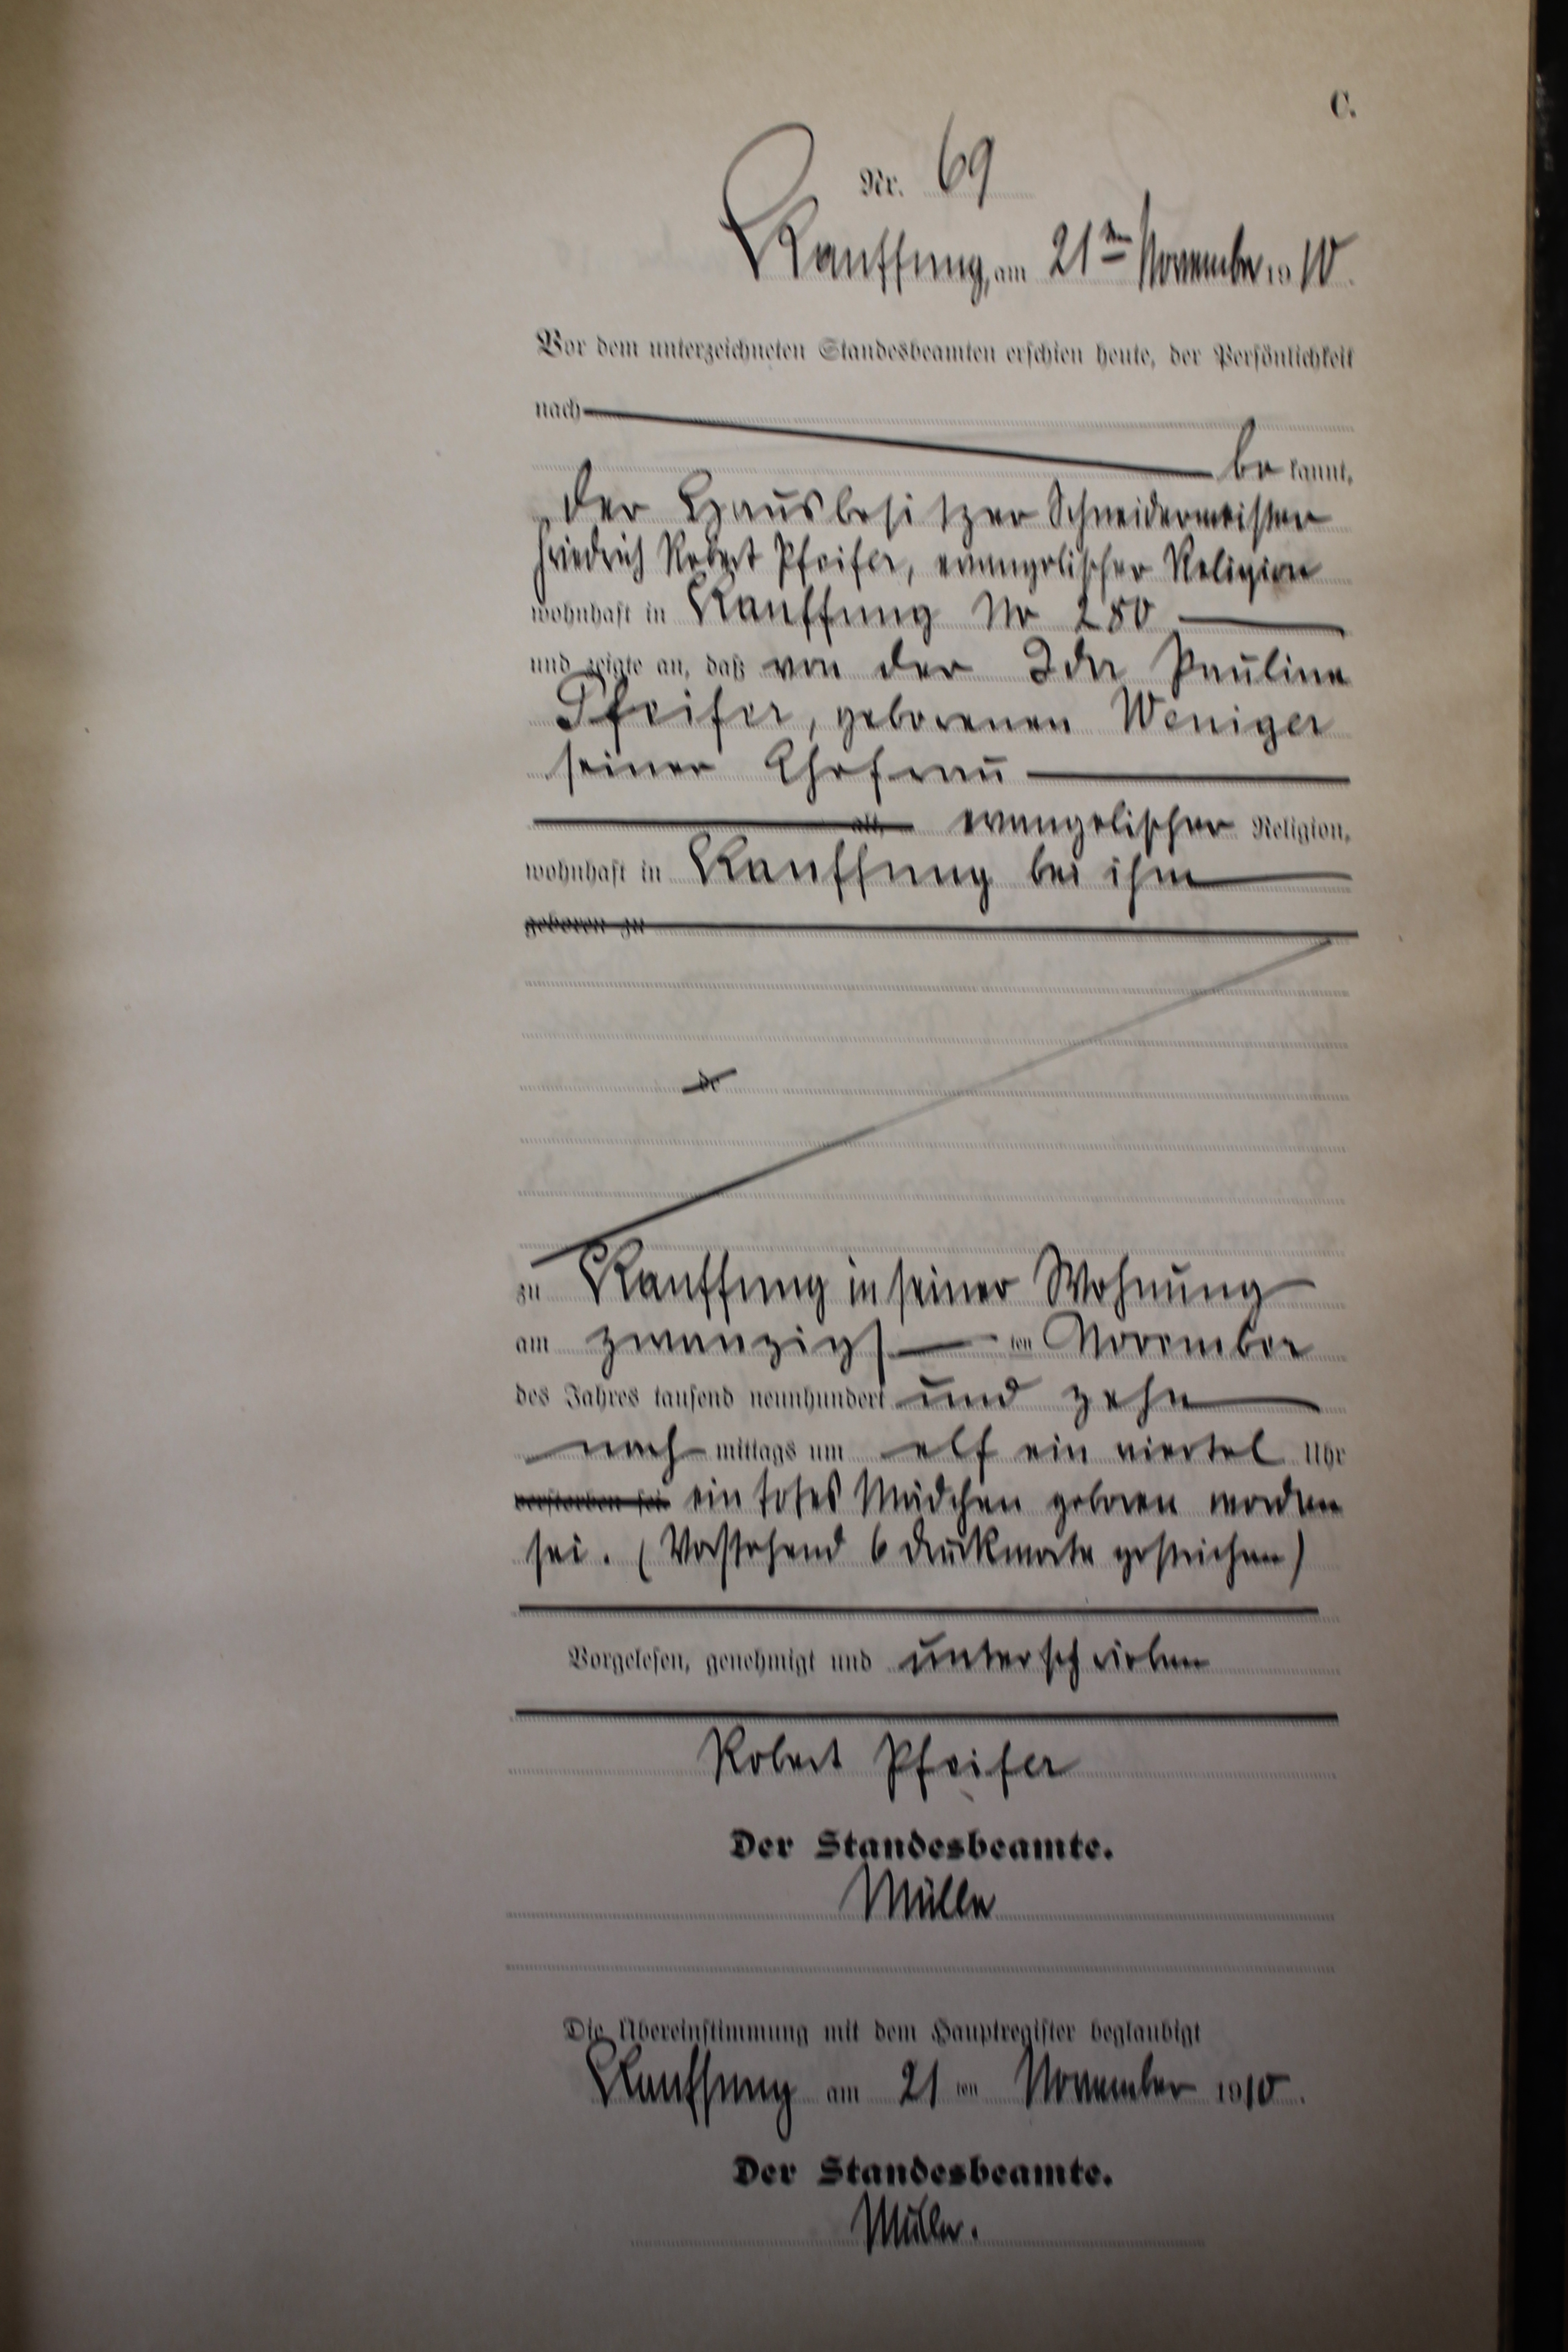 C.
Nr. 69
Kauffung, am 21ten November 1910.
Vor dem unterzeichneten Standesbeamten erschien heute, der Persönlichkeit
nach
be kannt,
der Hausbesitzer Schneidermeister
Friedrich Robert Pfeifer, evangelischer Religion
wohnhaft in Kauffung No 280
und zeigte an, daß von der Ida Pauline
Pfeifer, geborenen Weniger
seiner Ehefrau
alt, evangelischer Religion,
wohnhaft in Kauffung bei ihm
geboren zu
de
zu Kauffung in seiner Wohnung
am zwanzigs ten November
des Jahres tausend neunhundert und zehn
nach mittags um elf ein viertel Uhr
verstorben sei ein totes Mädchen geboren worden
sei. (Vorstehend 6 Druckworte gestrichen)
Vorgelesen, genehmigt und unterschrieben
Robert Pfeifer
Der Standesbeamte.
Müller
Die Übereinstimmung mit dem Hauptregister beglaubigt
Kauffung am 21 ten November 1910.
Der Standesbeamte.
Müller.